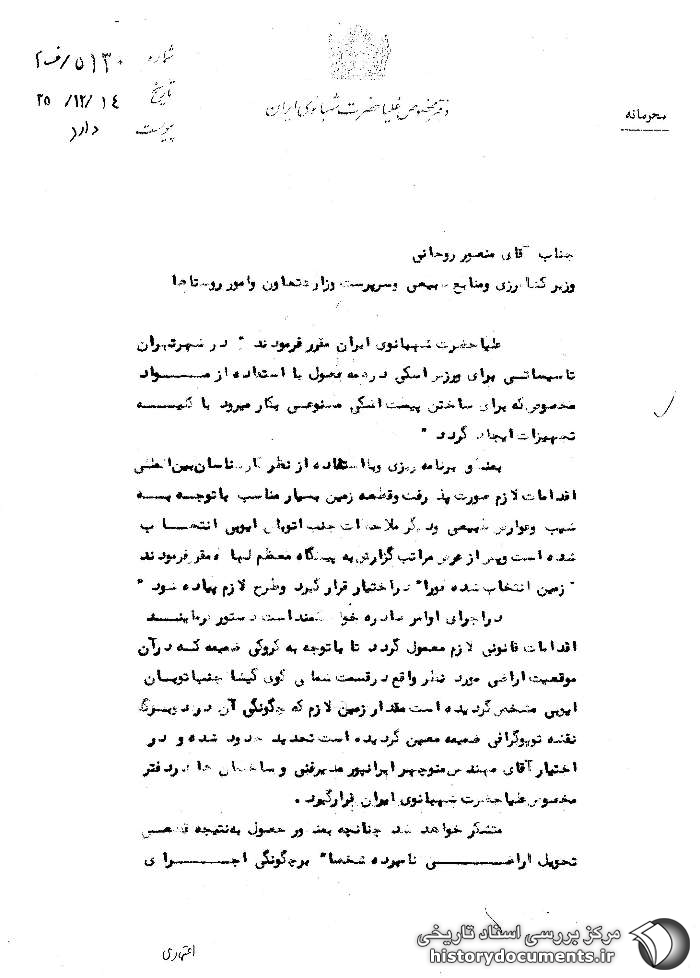 شماره ۵۱۳۰/ف۲
تاریخ ۲۵/۱۲/۱۴
پیوست دارد
دفتر مخصوص علیاحضرت شهبانوی ایران
محرمانه
جناب آقای منصور روحانی
وزیر کشاورزی ومنابع طبیعی وسرپرست وزارتتعاون وامور روستاها
علیاحضرت شهبانوی ایران مقرر فرمودند " در شهرتهران
تاسیساتی برای ورزش اسکی در همه فصول با استفاده از مواد
مخصوص که برای ساختن پیست اسکی مصنوعی بکار میرود با کلیه
تجهیزات ایجاد گردد "
و برنامه ریزی وبااستفاده از نظر کارشناسان بین المللی
اقدامات لازم صورت پذیرفت وقطعه زمین بسیار مناسب باتوجه به
شیب وعوارض طبیعی ودیگر ملاحظات جنب اتوبان ایوبی انتخاب
شده است وپس از عرض مراتب گزارش به پیشگاه معظم لها مقرر فرمودند
" زمین انتخاب شده فورا" دراختیار قرار گیرد وطرح لازم پیاده شود "
دراجرای اوامر صادره خواهشمنداست دستور فرمایند
اقدامات قانونی لازم معمول گردد تا باتوجه به کروکی ضمیمه که درآن
موقعیت اراضی مورد نظر واقع درقسمت شمالی کوی گیشا جنب اتوبان
ایوبی مشخص گردیده است مقدار زمین لازم که چگونگی آن در دوبرگ
نقشه توپوگرافی ضمیمه معین گردیده است تحدید حدود شده و در
اختیار آقای مهندس منوچهر ایرانپور مدیرفنی و ساختمان ها دردفتر
مخصوص علیاحضرت شهبانوی ایران قرارگیرد .
متشکر خواهد شد چنانچه ور حصول به نتیجه قطعی
تحویل اراضی نامبرده شخصا" برچگونگی اجرای
مرکز بررسی اسناد تاریخی
historydocuments.ir